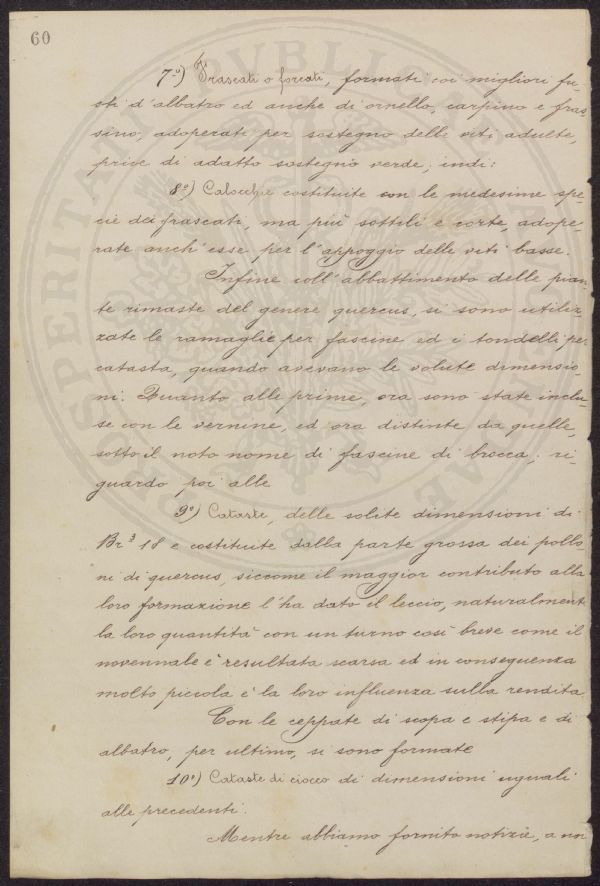 60
7º) Frascati o forcati, formati coi migliori fu-
sti d'albatro ed anche di ornello, carpino e fras
sino, adoperati per sostegno delle viti adulte,
prive di adatto sostegno verde; indi:
8º) Calocchie costituite con le medesime spe-
cie dei frascati, ma più sottili e corte, adope-
rate anch'esse per l'appoggio delle viti basse.
Infine coll'abbattimento delle pian
te rimaste del genere quercus, si sono utiliz-
zate le ramaglie per fascine ed i tondelli per
catasta, quando avevano le volute dimensio-
ni. Quanto alle prime, ora sono state inclu-
se con le vernine, ed ora distinte da quelle,
sotto il noto nome di fascine di brocca; ri-
guardo poi alle
9º) Cataste, delle solite dimensioni di
Br.³ 18 e costituite dalla parte grossa dei pollo-
ni di quercus, siccome il maggior contributo alla
loro formazione l'ha dato il leccio, naturalmente
la loro quantità con un turno così breve come il
novennale è resultata scarsa ed in conseguenza
molto piccola è la loro influenza sulla rendita
Con le ceppate di scopa e stipa e di
albatro, per ultimo, si sono formate
10º) Cataste di ciocco di dimensioni uguali
alle precedenti.
Mentre abbiamo fornito notizie, a no
PVBLICAE
PROSPERITATI